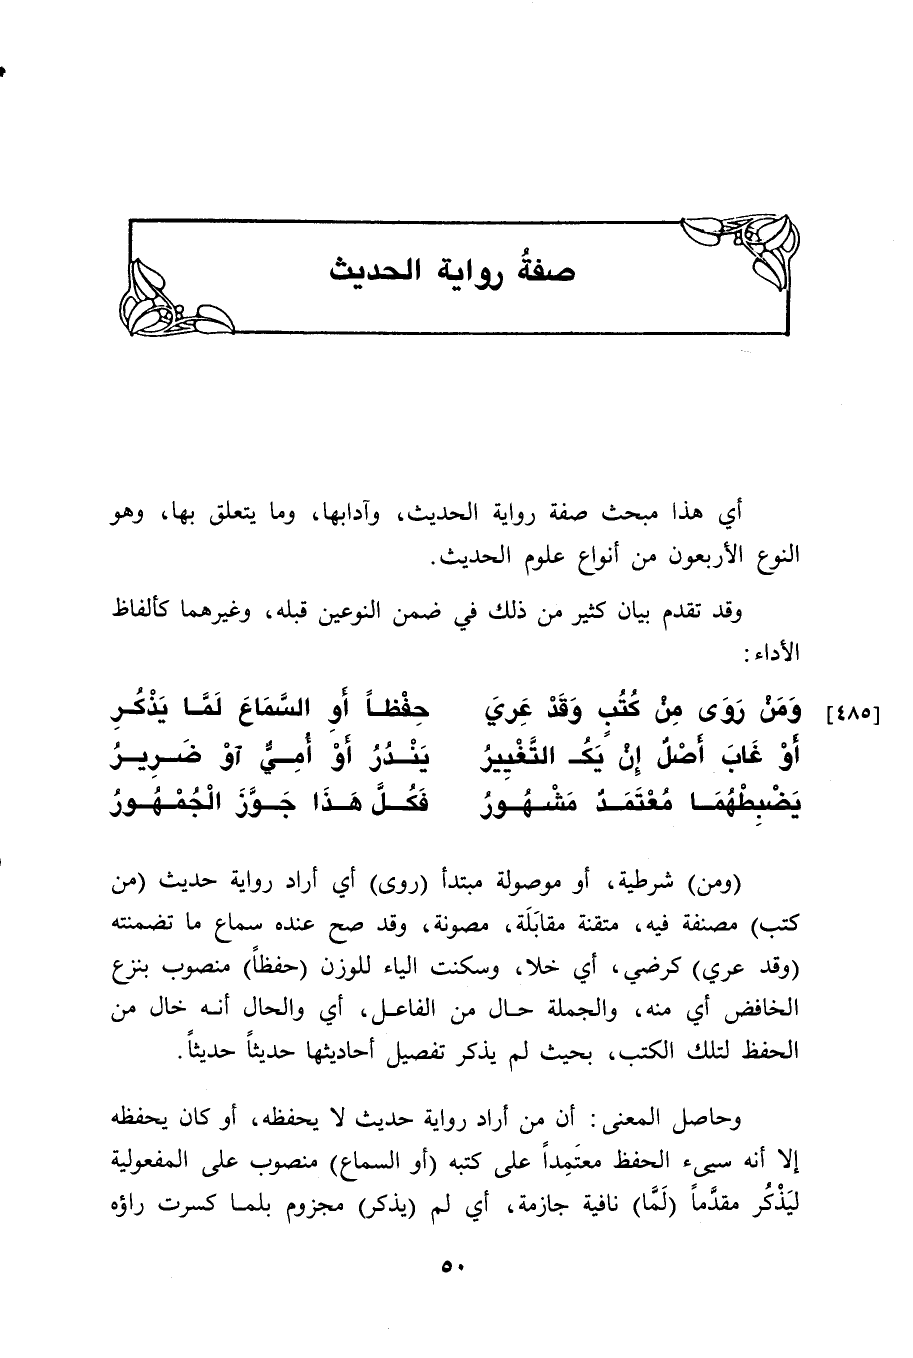 صفةُ رواية الحديث
أي هذا مبحث صفة رواية الحديث، وآدابها، وما يتعلق بها، وهو
النوع الأربعون من أنواع علوم الحديث.
وقد تقدم بيان كثير من ذلك في ضمن النوعين قبله، وغيرهما كألفاظ
الأداء:
[٤٨٥] وَمَنْ رَوَى مِنْ كُتُبٍ وَقَدْ عَرِي حِفْظاً أَوِ السَّمَاعَ لَمَّا يَذْكُرِ
أَوْ غَابَ أَصْلٌ إِنْ يَكُ التَّغْيِيرُ يَنْدُرُ أَوْ أُمِيٌّ آوْ ضَرِيرُ
يَضْبِطْهُمَا مُعْتَمَدٌ مَشْهُورُ فَكُلَّ هَذَا جَوَّزَ الْجُمْهُورُ
(ومن) شرطية، أو موصولة مبتدأ (روى) أي أراد رواية حديث (من
كتب) مصنفة فيه، متقنة مقابَلَة، مصونة، وقد صح عنده سماع ما تضمنته
(وقد عري) كرضي، أي خلا، وسكنت الياء للوزن (حفظاً) منصوب بنزع
الخافض أي منه، والجملة حال من الفاعل، أي والحال أنه خال من
الحفظ لتلك الكتب، بحيث لم يذكر تفصيل أحاديثها حديثاً حديثاً.
وحاصل المعنى: أن من أراد رواية حديث لا يحفظه، أو كان يحفظه
إلا أنه سيىء الحفظ معتَمِداً على كتبه (أو السماع) منصوب على المفعولية
ليَذْكُر مقدَّماً (لَمَّا) نافية جازمة، أي لم (يذكر) مجزوم بلما كسرت راؤه
٥٠